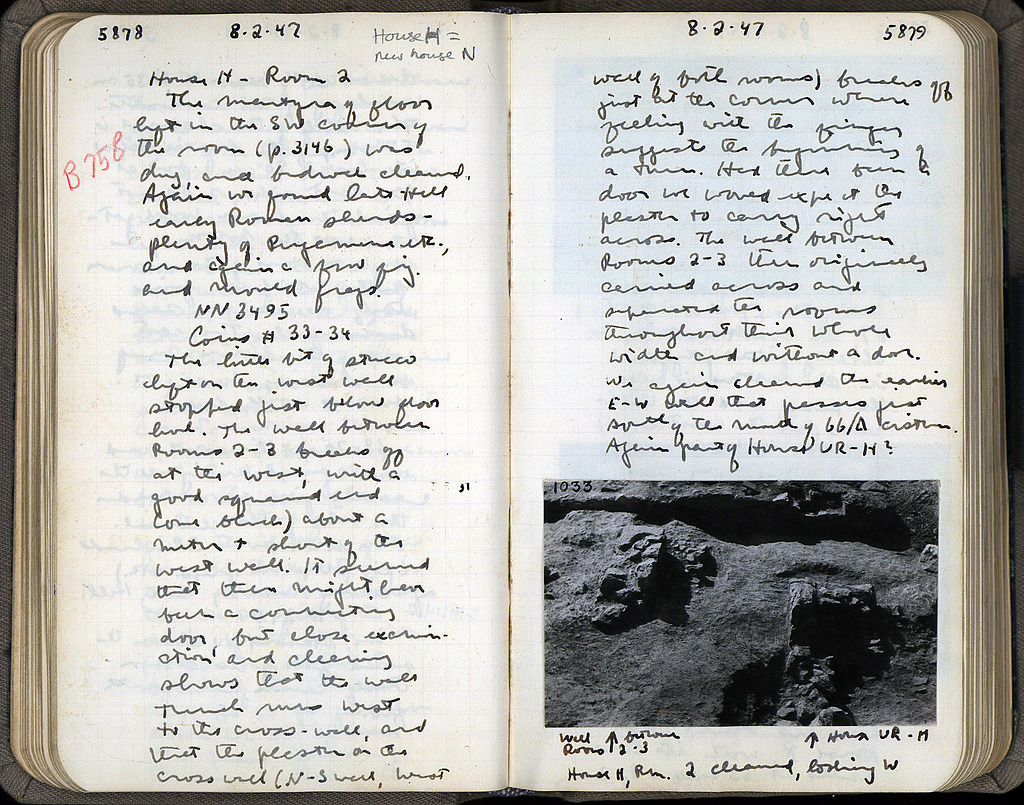 5878
8·2·47
House H =
new house N
House H - Room 2
The martyra of floor
left in the SW corner of
the room (p. 3146) was
dug, and bedrock cleaned.
B 758
Again we found late Hell
early Roman sherds -
plenty of Pergamene etc.,
and again a few fig.
and mould frags.
NN 3495
Coins # 33-34
The little bit of stucco
left on the west wall
stopped just below floor
level. The wall between
Rooms 2-3 breaks off
at the west, with a
good squared end
(one block) about a
meter + short of the
west wall. It seemed
that there might have
been a connecting
door but close examin-
ation and cleaning
shows that the wall
trench runs west
to the cross-wall, and
that the plaster on the
cross wall (N-S wall, west
8·2·47
5879
wall of both rooms) breaks off
just at the corner where
feeling with the fingers
suggests the beginning of
a turn. Had there been a
door we would expect the
plaster to carry right
across. The wall between
Rooms 2-3 then originally
carried across and
separated the rooms
throughout their whole
width and without a door.
We again cleaned the earlier
E-W wall that passes just
south of the mouth of 66/Δ cistern.
Again part of House UR-H?
1033
Wall ↑ between
Rooms 2-3
↑ House UR-H
House H, Rm. 2 cleaned, looking W